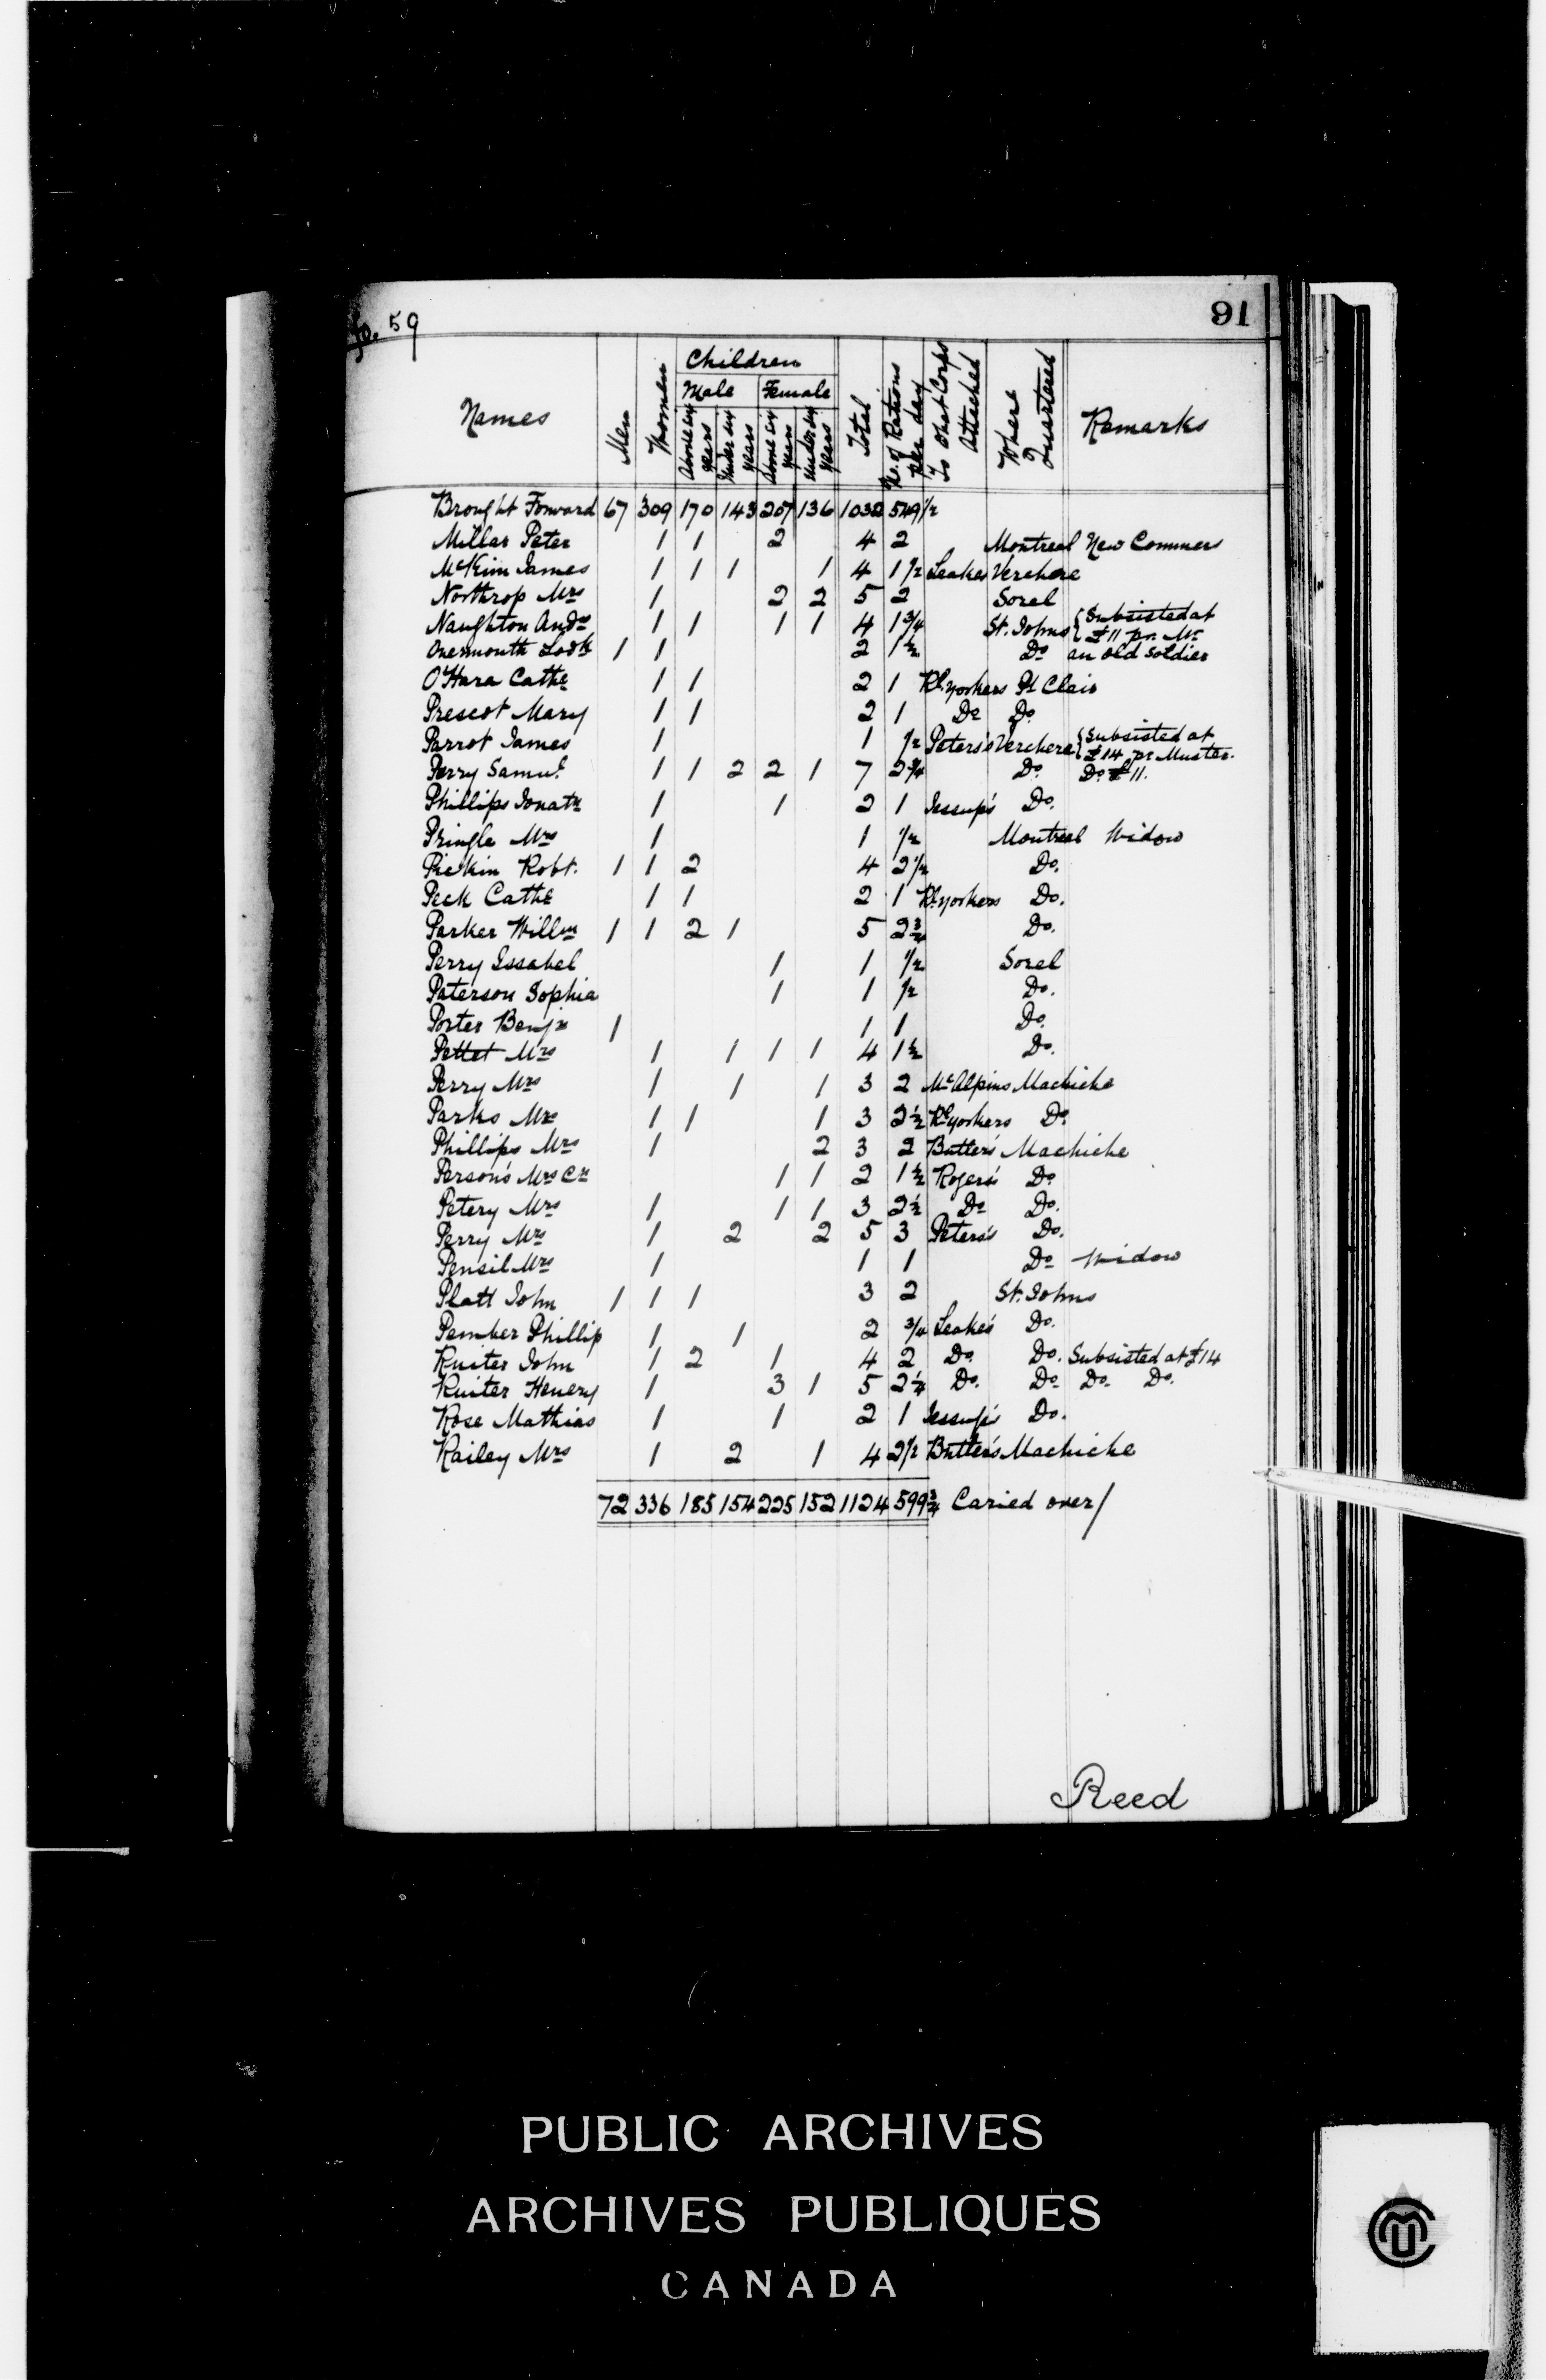 fo. 59
91
Names
Men
Women
Children
Male
Female
Above six years
Under six years
Above six years
Under six years
Total
No. of Rations per day
To what Corps Attached
Where Quartered
Remarks
Brought Forward 67 309 170 143 207 136 1032 549 1/2
Millar Peter 1 1 2 4 2 Montreal New Commers
McKim James 1 1 1 1 4 1 1/2 Leakes Verchere
Northrop Mrs 1 2 2 5 2 Sorel
Naughton Andw 1 1 1 1 4 1 3/4 St. Johns { Subsisted at £11 pr. Mr
Overmouth Lodk 1 1 2 1 1/2 Do an old Soldier
O'Hara Cathe 1 1 2 1 Rl. yorkers Pt Clair
Prescot Mary 1 1 2 1 Do Do.
Parrot James 1 1 1/2 Peters's Verchere { Subsisted at £14 pr Muster.
Perry Saml. 1 1 2 2 1 7 2 3/4 Do. Do £11.
Phillips Jonatn 1 1 2 1 Jessup's Do.
Pringle Mrs 1 1 1/2 Montreal Widow
Pickin Robt. 1 1 2 4 2 1/2 Do.
Peck Cathe 1 1 2 1 Rl. yorkers Do.
Parker Willm 1 1 2 1 5 2 3/4 Do.
Perry Issabel 1 1 1/2 Sorel
Paterson Sophia 1 1 1/2 Do.
Porter Benjn 1 1 1 Do.
Pettet Mrs 1 1 1 1 4 1 1/2 Do.
Perry Mrs 1 1 1 3 2 McAlpins Machiche
Parks Mrs 1 1 1 3 2 1/2 Rl yorkers Do.
Phillips Mrs 1 2 3 2 Butler's Machiche
Person's Mrs Cn 1 1 2 1 1/2 Rogers's Do
Petery Mrs 1 1 1 3 2 1/2 Do Do.
Perry Mrs 1 2 2 5 3 Peters's Do.
Pensil Mrs 1 1 1 Do Widow
Platt John 1 1 1 3 2 St. Johns
Pember Phillip 1 1 2 3/4 Leake's Do.
Ruiter John 1 2 1 4 2 Do. Do. Subsisted at £14
Ruiter Henery 1 3 1 5 2 1/4 Do. Do Do Do.
Rose Mathias 1 1 2 1 Jessup's Do.
Railey Mrs 1 2 1 4 2 1/2 Butler's Machiche
72 336 185 154 225 152 1124 599 3/4 Caried over/
Reed
PUBLIC ARCHIVES
ARCHIVES PUBLIQUES
CANADA